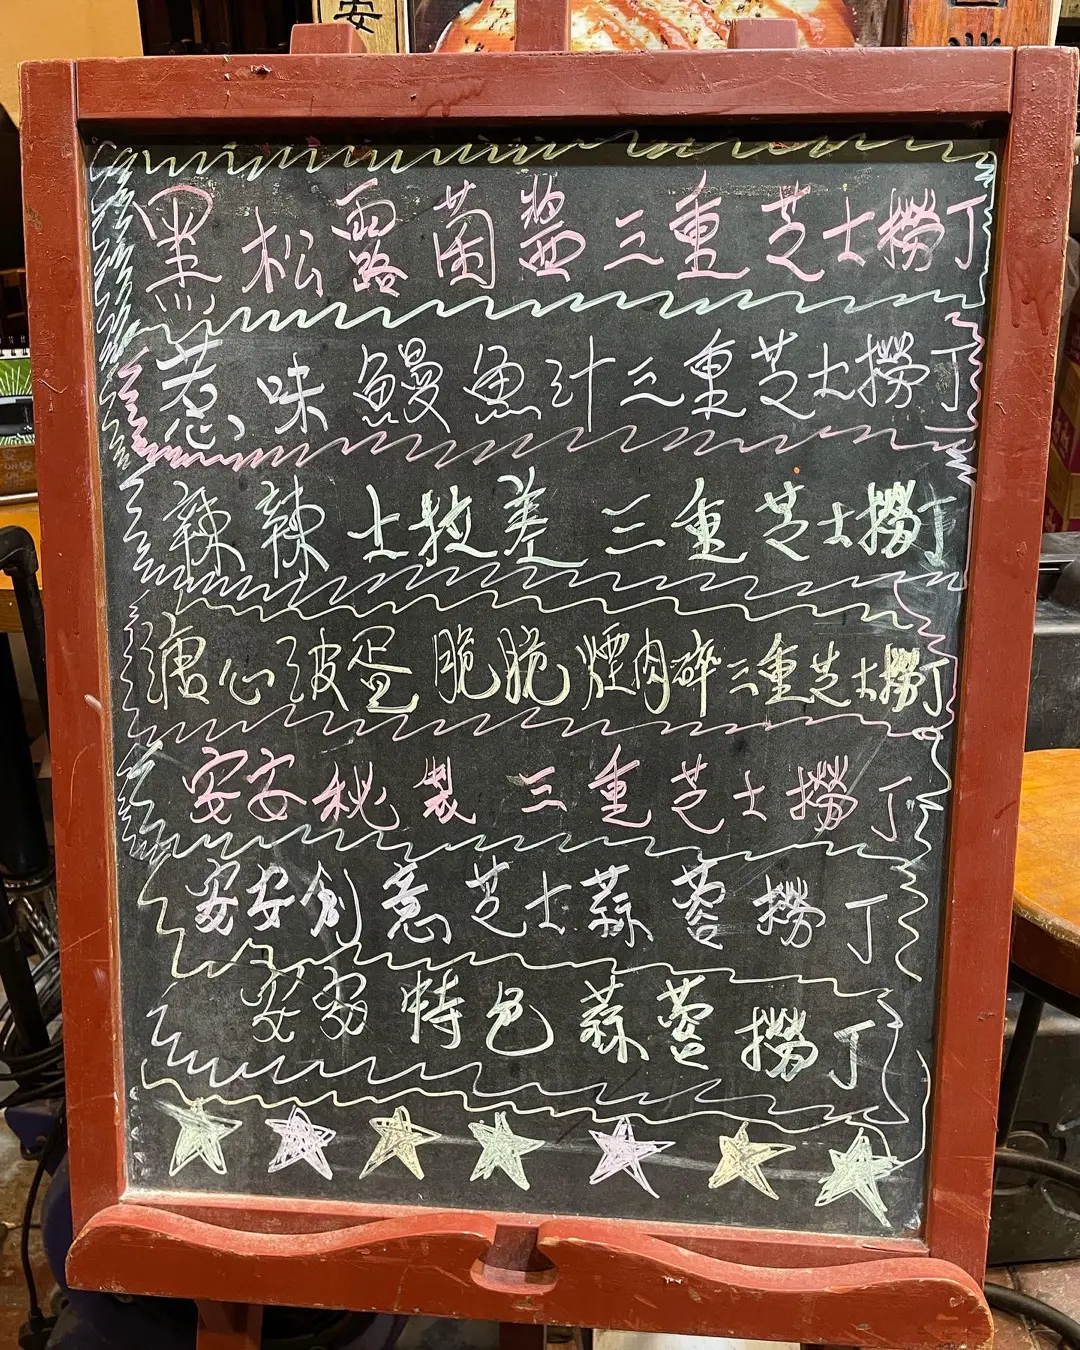 安
黑松露菌醬三重芝士撈丁
惹味鰻魚汁三重芝士撈丁
辣辣士拉差三重芝士撈丁
溏心波蛋脆脆煙肉碎三重芝士撈丁
安安秘製三重芝士撈丁
安安創意芝士蒜蓉撈丁
安安特色蒜蓉撈丁